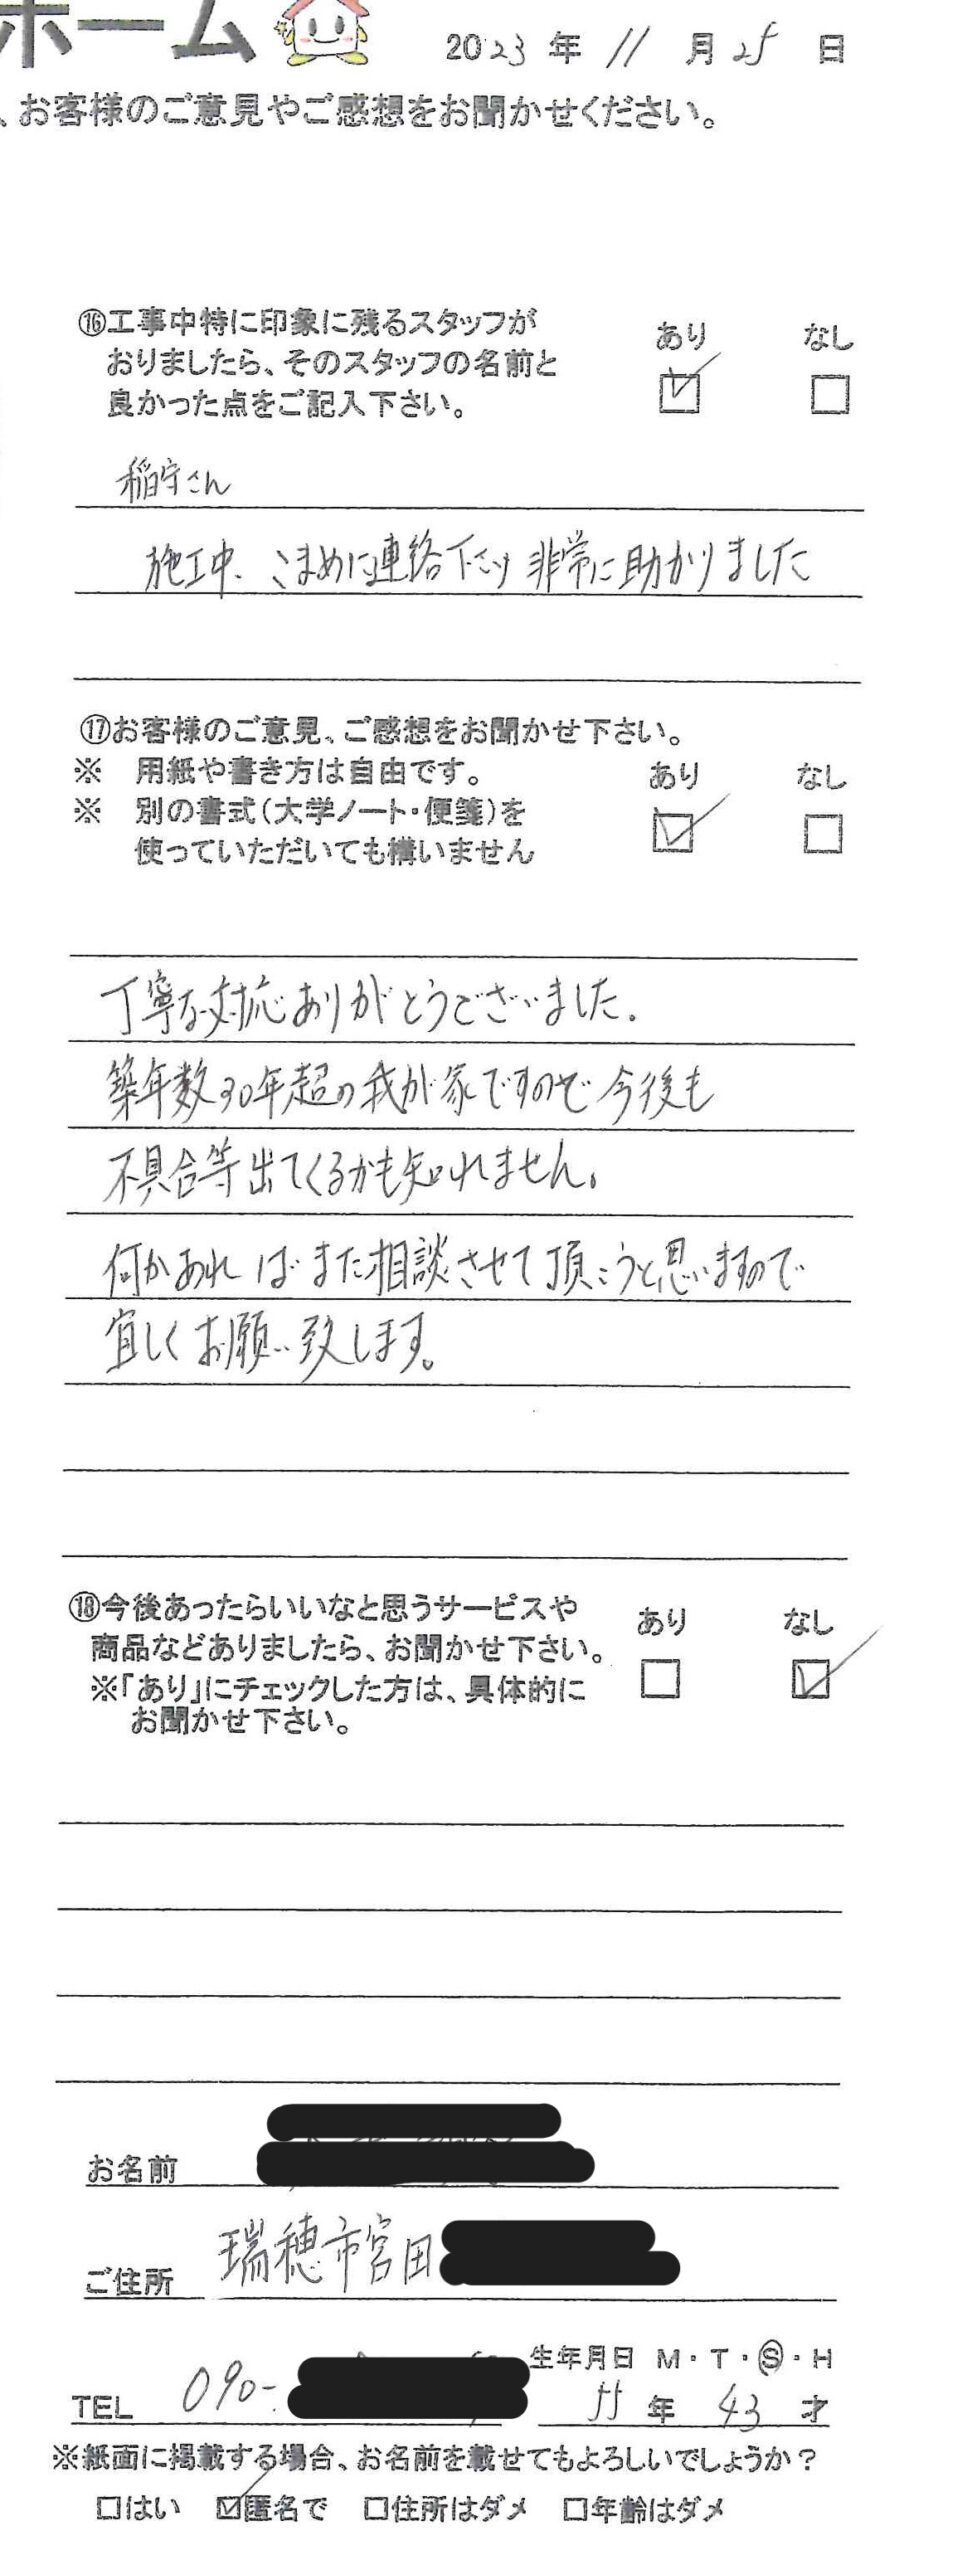 ホーム
2023年11月25日
、お客様のご意見やご感想をお聞かせください。
⑯工事中特に印象に残るスタッフが
おりましたら、そのスタッフの名前と
良かった点をご記入下さい。
あり なし
稲守さん
施工中、こまめに連絡下さり非常に助かりました
⑰お客様のご意見、ご感想をお聞かせ下さい。
※ 用紙や書き方は自由です。
※ 別の書式(大学ノート・便箋)を
使っていただいても構いません
あり なし
丁寧な対応ありがとうございました。
築年数30年超の我が家ですので今後も
不具合等出てくるかも知れません。
何かあればまた相談させて頂こうと思いますので
宜しくお願い致します。
⑱今後あったらいいなと思うサービスや
商品などありましたら、お聞かせ下さい。
※「あり」にチェックした方は、具体的に
お聞かせ下さい。
あり なし
お名前
ご住所 瑞穂市宮田
生年月日 M・T・S・H
TEL 090- 55年 43才
※紙面に掲載する場合、お名前を載せてもよろしいでしょうか？
□はい ☑匿名で □住所はダメ □年齢はダメ